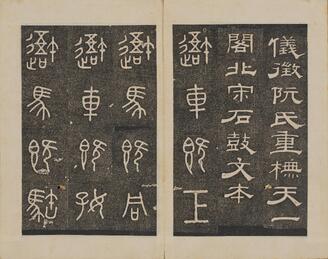 儀徵阮氏重橅天一
閣北宋石鼓文本
䢖車既工
䢖馬既同
䢖車既好
䢖馬既駐